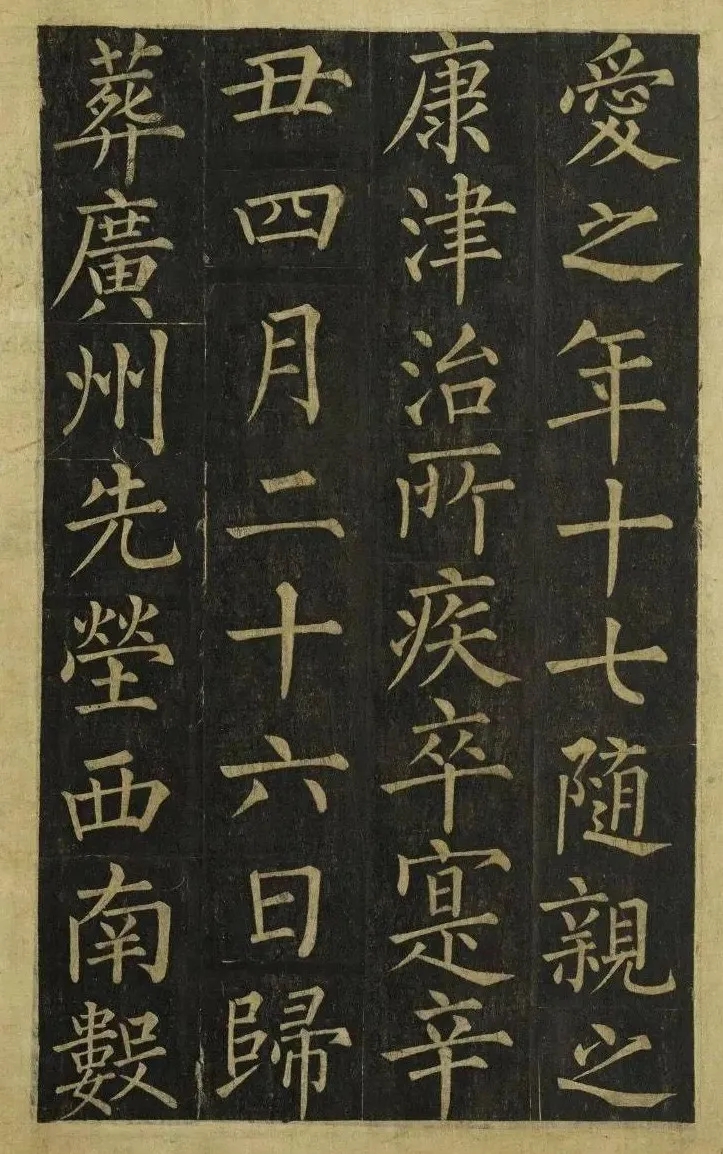 愛之年十七隨親之
康津治所疾卒寔辛
丑四月二十六日歸
葬廣州先塋西南數